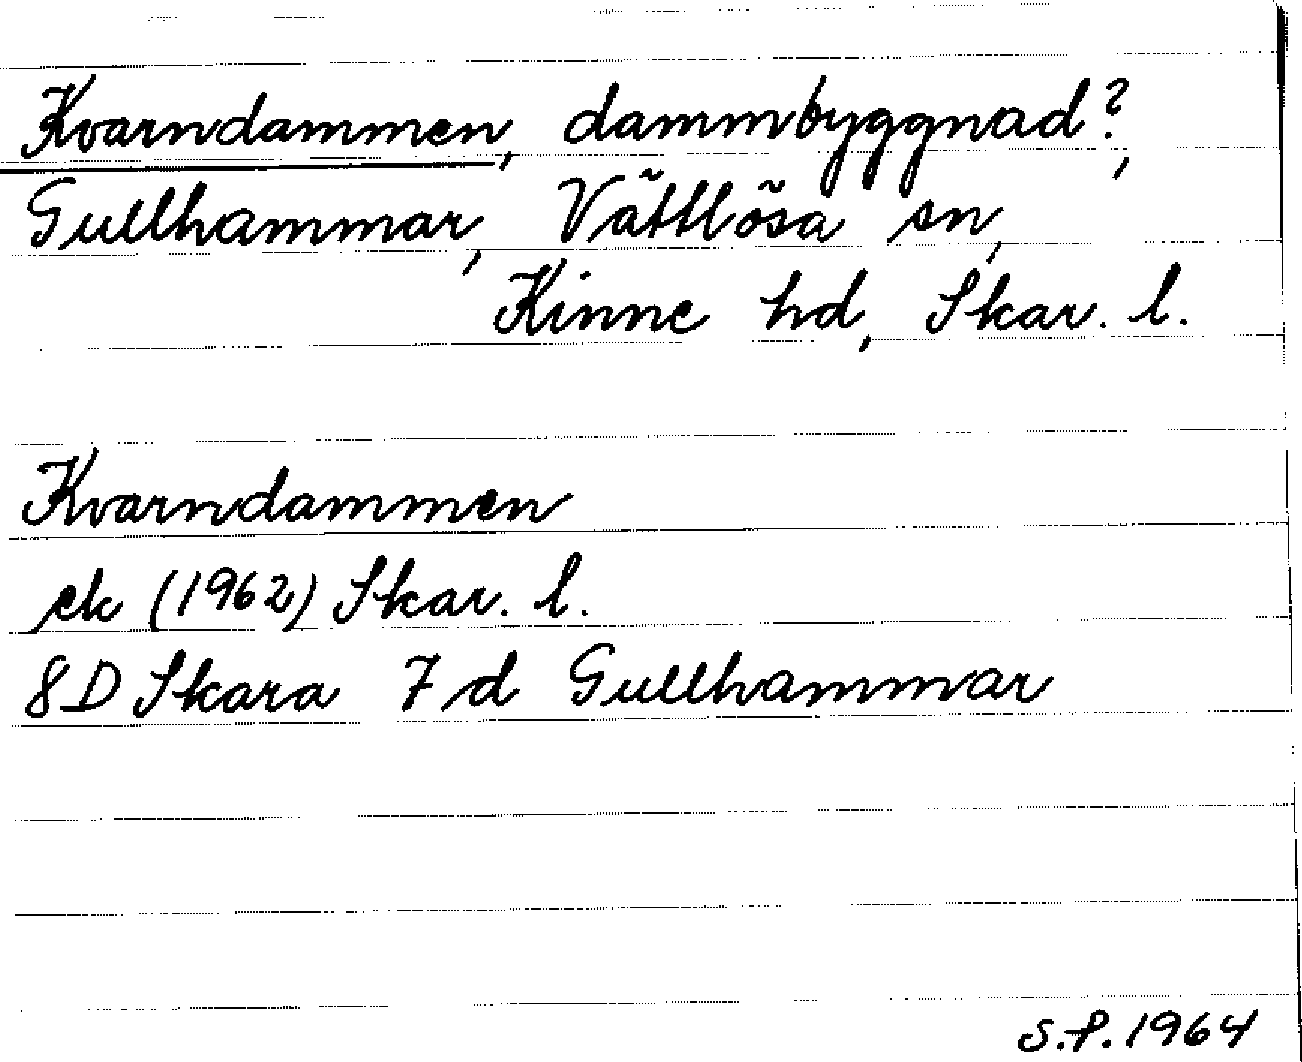 Kvarndammen, dammbyggnad?,
Gullhammar, Vättlösa sn,
Kinne hd, Skar. l.
Kvarndammen
ek (1962) Skar. l.
8D Skara 7d Gullhammar
S.P. 1964